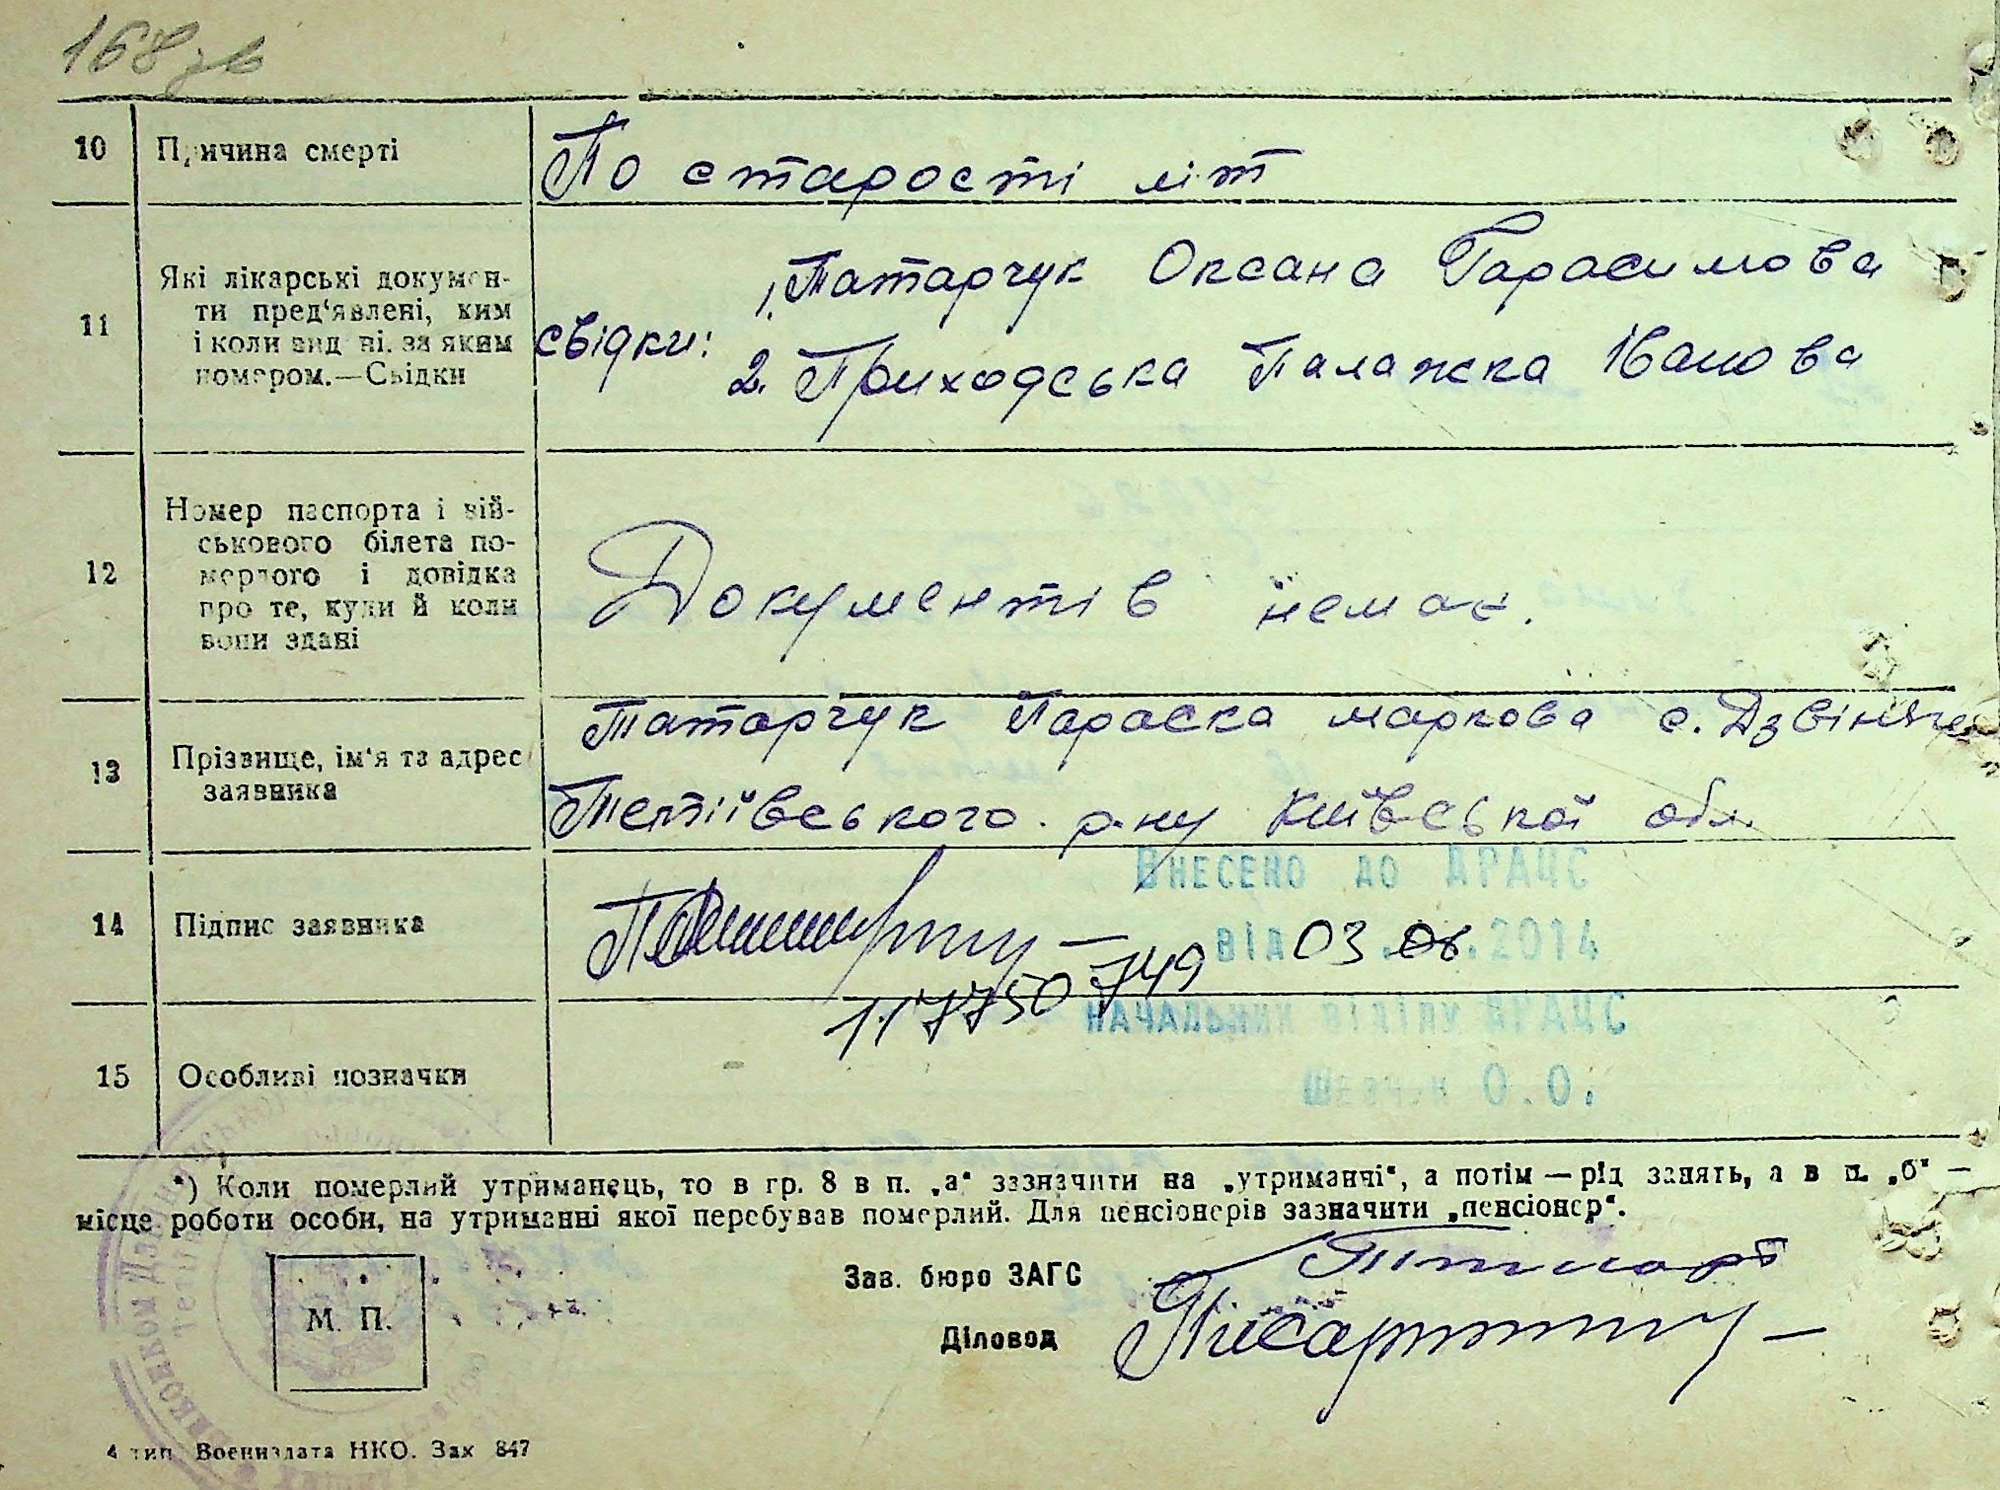 168 зв
10 Причина смерті
По старості літ
11 Які лікарські докумен-
ти пред'явлені, ким
і коли вид ні. за яким
номером.—Свідки
свідки:
1, Татарчук Оксана Гарасимова
2. Приходська Палажка Іванова
12 Номер паспорта і вій-
ськового білета по-
мерлого і довідка
про те, куди й коли
вони здані
Документів немає.
13 Прізвище, ім'я та адрес
заявника
Татарчук Параска маркова с. Дзвіняче
Тетіївського р-ну Київської обл.
14 Підпис заявника
Внесено до ДРАЦС
від 03.06.2014
117750749
начальник відділу ДРАЦС
Шевчук О.О.
15 Особливі позначки
*) Коли померлий утриманець, то в гр. 8 в п. „а“ зазначити на „утриманчі“, а потім — рід занять, а в п. „б“ —
місце роботи особи, на утриманні якої перебував померлий. Для пенсіонерів зазначити „пенсіонер“.
Зав. бюро ЗАГС
М. П.
Діловод
4 тип Воениздата НКО. Зак 847